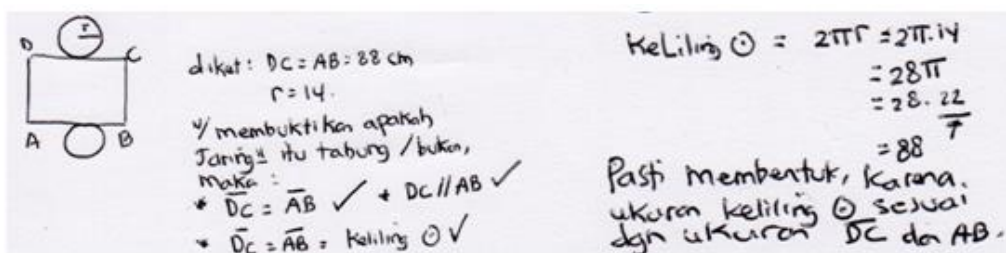 r
D C
A B
diket: DC = AB = 88 cm
r = 14.
u/ membuktikan apakah
Jaring" itu tabung / bukan,
maka :
* D̅C̅ = A̅B̅ ✓ * DC // AB ✓
* D̅C̅ = A̅B̅ = Keliling ⊙ ✓
Keliling ⊙ = 2πr = 2π.14
= 28π
= 28. 22/7
= 88
Pasti membentuk, karena.
ukuran keliling ⊙ sesuai
dgn ukuran D̅C̅ dan AB.